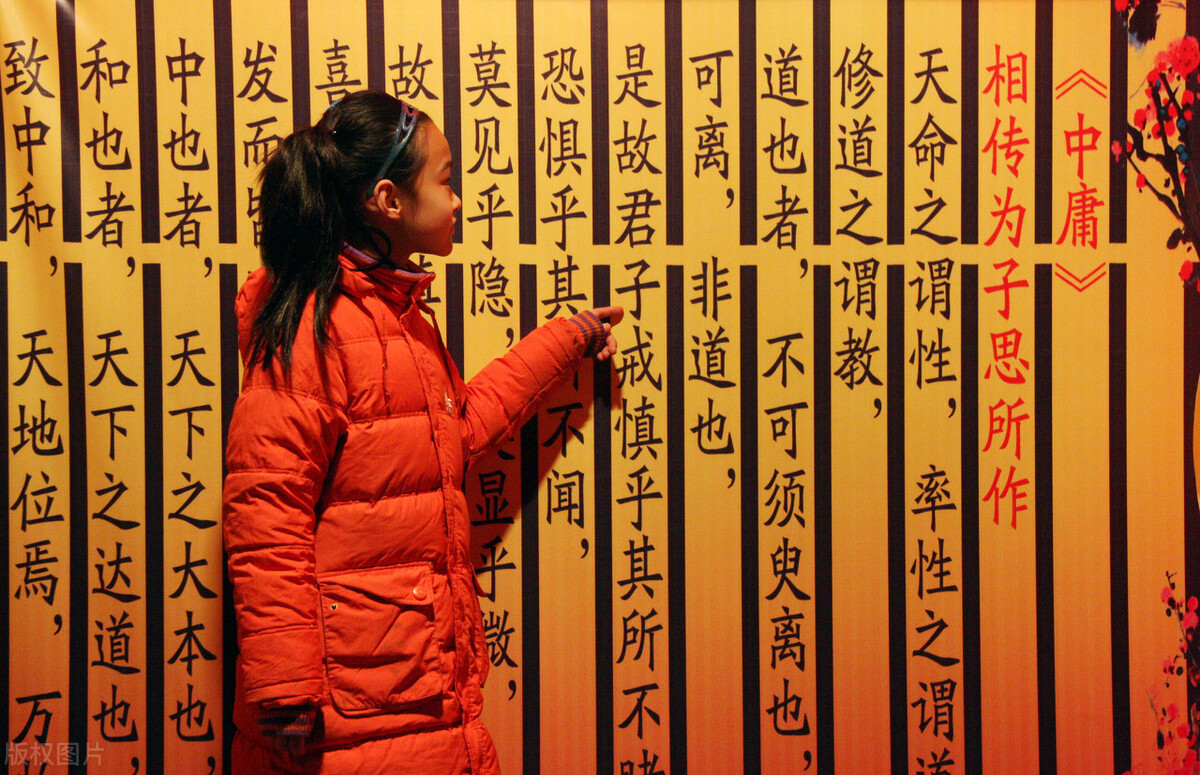 《中庸》
相传为子思所作
天命之谓性，率性之谓道
修道之谓教，
道也者，不可须臾离也，
可离，非道也，
是故君子戒慎乎其所不睹
恐惧乎其不闻，
莫见乎隐，显乎微，
故
喜
发而皆
中也者，天下之大本也，
和也者，天下之达道也，
致中和，天地位焉，万
版权图片